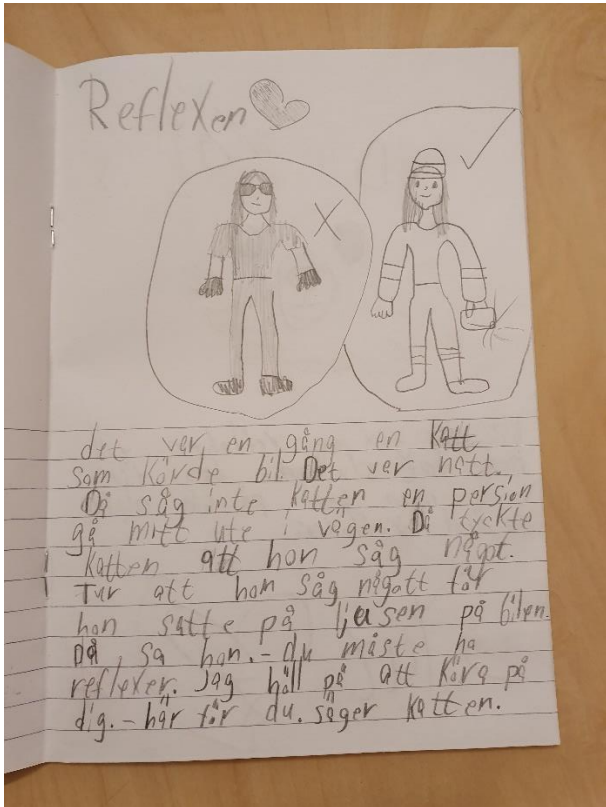 Reflexen
det var en gång en katt
som körde bil. Det var natt.
Då såg inte katten en persion
gå mitt ute i vägen. Då tyckte
katten att hon såg något.
Tur att hon såg någott för
hon satte på ljusen på bilen.
Då sa hon. - du måste ha
reflexer. Jag höll på att köra på
dig. - här får du. säger katten.